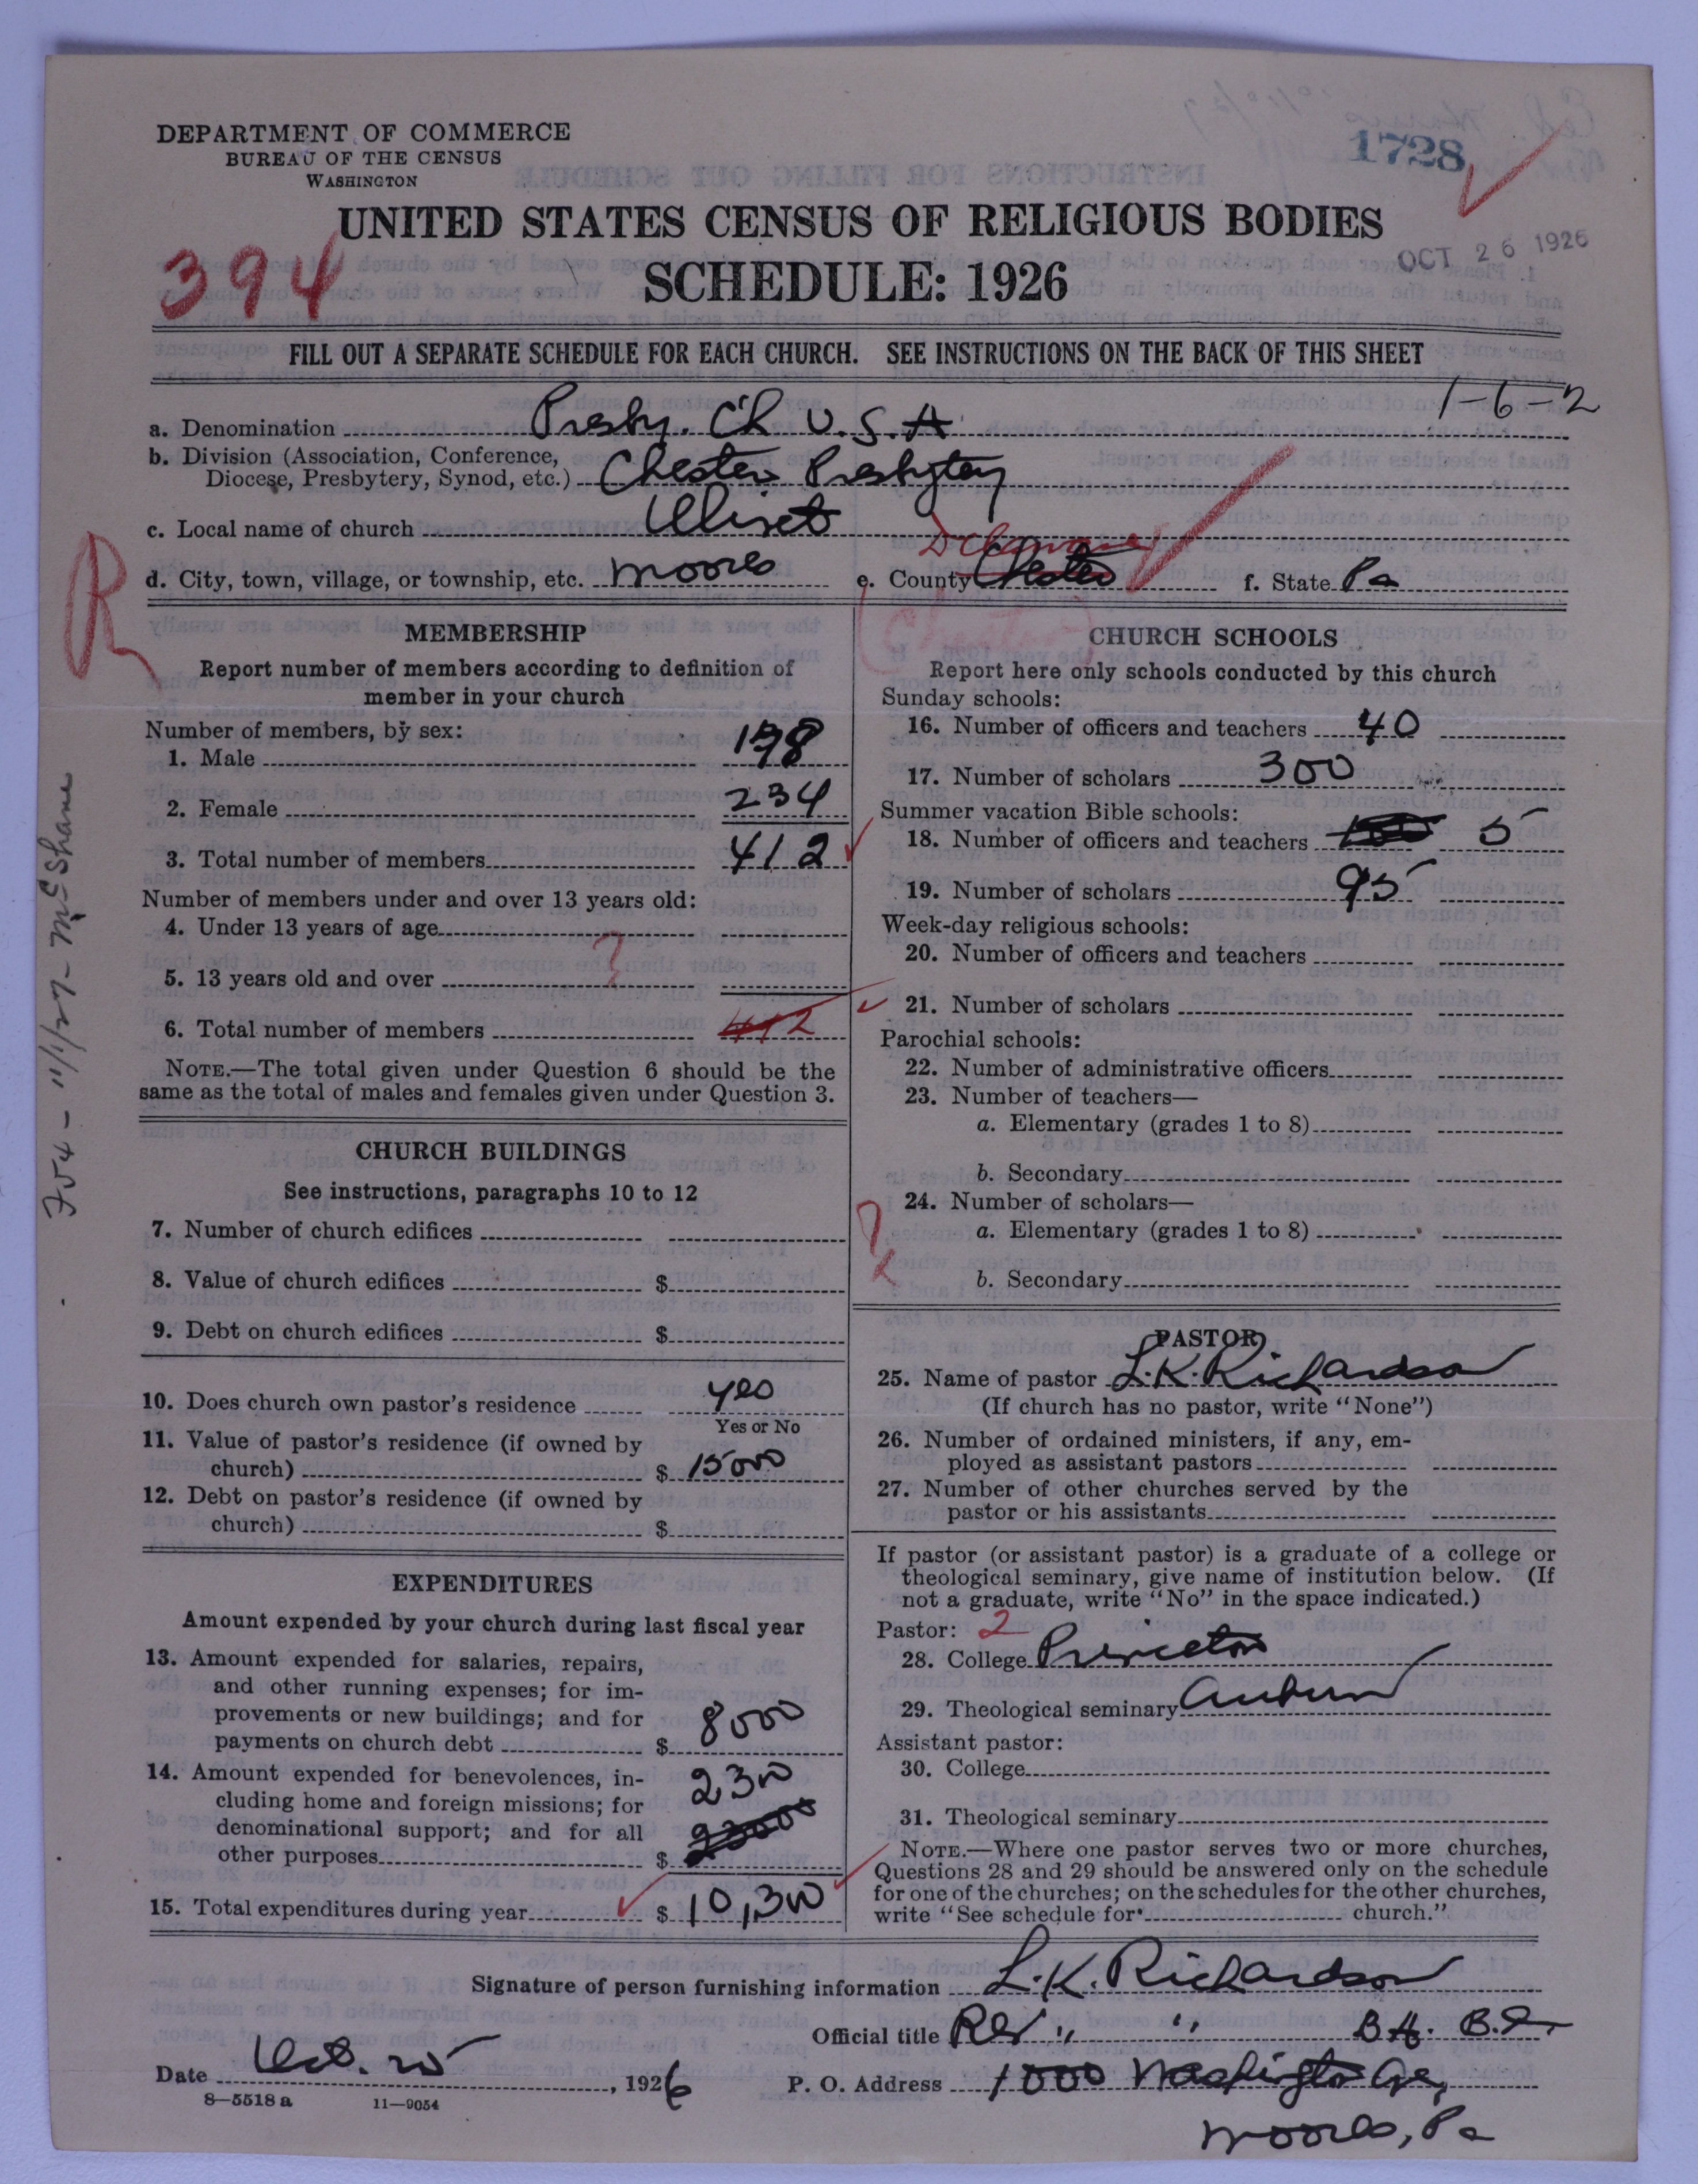 DEPARTMENT OF COMMERCE
BUREAU OF THE CENSUS
WASHINGTON
1728
UNITED STATES CENSUS OF RELIGIOUS BODIES
OCT 26 1926
394
SCHEDULE: 1926
FILL OUT A SEPARATE SCHEDULE FOR EACH CHURCH. SEE INSTRUCTIONS ON THE BACK OF THIS SHEET
1-6-2
a. Denomination Presby. Ch U.S.A
b. Division (Association, Conference,
Diocese, Presbytery, Synod, etc.) Chester Presbytery
c. Local name of church Olivet
Delaware
d. City, town, village, or township, etc. Moores e. County Chester f. State Pa
R
Chester
MEMBERSHIP
Report number of members according to definition of
member in your church
Number of members, by sex:
1. Male 198
2. Female 234
3. Total number of members 412
Number of members under and over 13 years old:
4. Under 13 years of age
?
5. 13 years old and over
6. Total number of members 412
NOTE.—The total given under Question 6 should be the
same as the total of males and females given under Question 3.
704 - 11/1/27 - McShane
CHURCH BUILDINGS
See instructions, paragraphs 10 to 12
7. Number of church edifices
8. Value of church edifices $
9. Debt on church edifices $
10. Does church own pastor's residence yes
Yes or No
11. Value of pastor's residence (if owned by
church) $ 15000
12. Debt on pastor's residence (if owned by
church) $
EXPENDITURES
Amount expended by your church during last fiscal year
13. Amount expended for salaries, repairs,
and other running expenses; for im-
provements or new buildings; and for
payments on church debt $ 8000
14. Amount expended for benevolences, in-
cluding home and foreign missions; for
denominational support; and for all
other purposes $ 2300
23000
15. Total expenditures during year $ 10,300
CHURCH SCHOOLS
Report here only schools conducted by this church
Sunday schools:
16. Number of officers and teachers 40
17. Number of scholars 300
Summer vacation Bible schools:
18. Number of officers and teachers 5
19. Number of scholars 95
Week-day religious schools:
20. Number of officers and teachers
21. Number of scholars
Parochial schools:
22. Number of administrative officers
23. Number of teachers—
a. Elementary (grades 1 to 8)
b. Secondary
24. Number of scholars—
a. Elementary (grades 1 to 8)
b. Secondary
PASTOR
25. Name of pastor L.K. Richardson
(If church has no pastor, write "None")
26. Number of ordained ministers, if any, em-
ployed as assistant pastors
27. Number of other churches served by the
pastor or his assistants
If pastor (or assistant pastor) is a graduate of a college or
theological seminary, give name of institution below. (If
not a graduate, write "No" in the space indicated.)
Pastor: 2
28. College Princeton
29. Theological seminary Auburn
Assistant pastor:
30. College
31. Theological seminary
NOTE.—Where one pastor serves two or more churches,
Questions 28 and 29 should be answered only on the schedule
for one of the churches; on the schedules for the other churches,
write "See schedule for church."
Signature of person furnishing information L.K. Richardson
Official title Rev " "
Date Oct. 25, 1926
P. O. Address 1000 Washington Ave,
Moores, Pa
8—5518a 11—9054